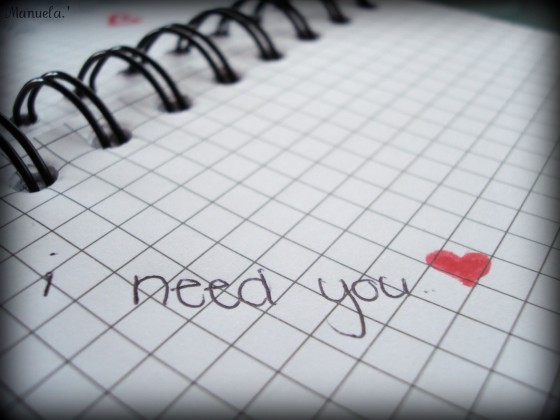 Manuela.'
i need you.